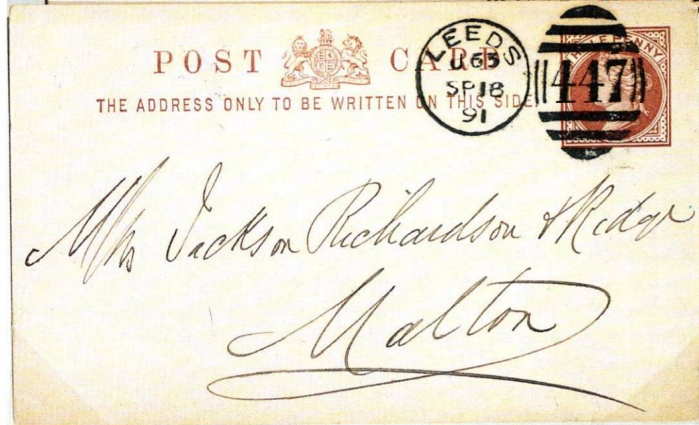 POST CARD
THE ADDRESS ONLY TO BE WRITTEN ON THIS SIDE
LEEDS
SP 18
91
447
HALFPENNY
Jackson Richardson & Ridge
Malton